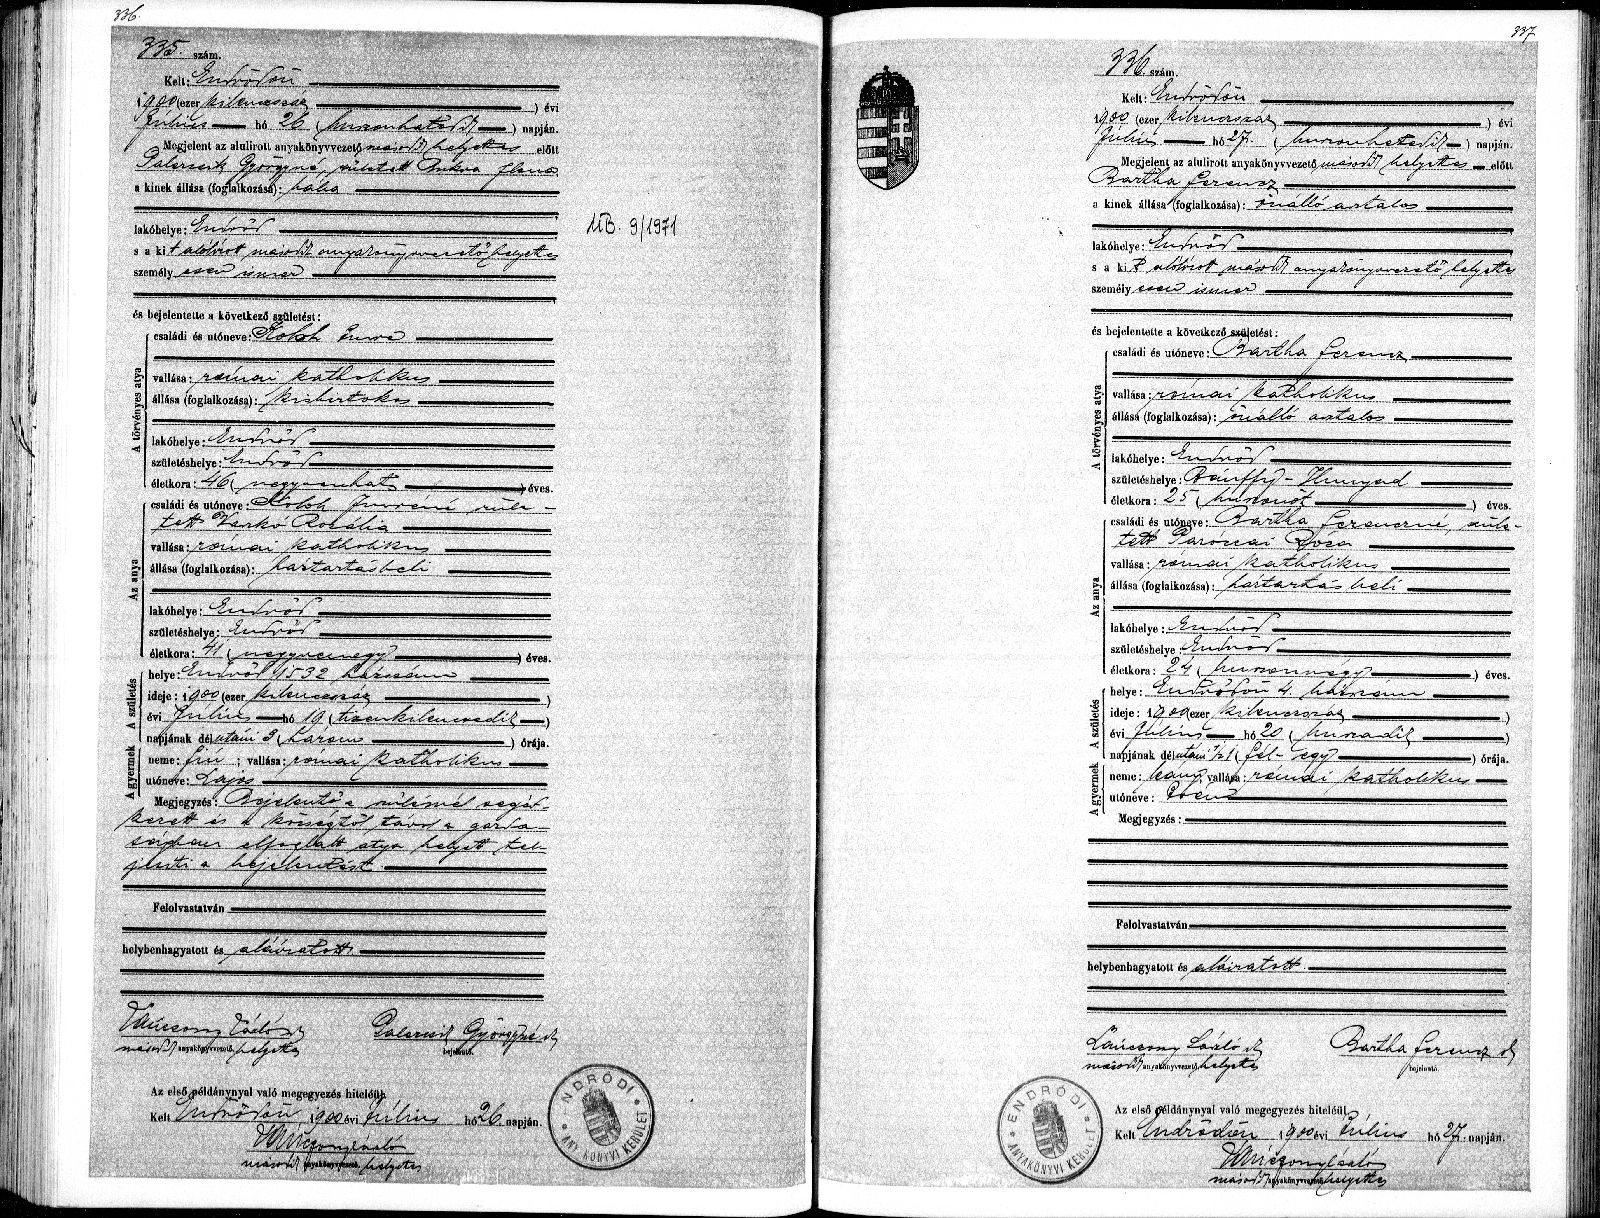 336.
335. szám.
Kelt: Endrődön
1900 (ezer kilencszáz ) évi
Július hó 26 (huszonhatodik ) napján.
Megjelent az alulirott anyakönyvvezető másod helyettes előtt
Györgyné, született Ilona
a kinek állása (foglalkozása): bába
lakóhelye: Endrőd
s a kit alólirott másod anyakönyvvezető helyettes
személyesen ismer
és bejelentette a következő születést:
A törvényes atya
családi és utóneve: Imre
vallása: római katholikus
állása (foglalkozása): kisbirtokos
lakóhelye: Endrőd
születéshelye: Endrőd
életkora: 46 (negyvenhat ) éves.
Az anya
családi és utóneve: Imréné szüle-
tett Varkó Rozália
vallása: római katholikus
állása (foglalkozása): háztartásbeli
lakóhelye: Endrőd
születéshelye: Endrőd
életkora: 41 (negyvenegy ) éves.
A születés
helye: Endrőd 1532 házszám
ideje: 1900 (ezer kilencszáz )
évi Július hó 19 (tizenkilencedik )
napjának délutáni 3 (három ) órája.
A gyermek
neme: fiú; vallása: római katholikus
utóneve: Lajos
Megjegyzés: Bejelentő a szülésnél segéd-
kezett és a községtől távol a gazda-
ságban elfoglalt atya helyett tel-
jesiti a bejelentést
Felolvastatván
helybenhagyatott és aláiratott
Lánczony László
másod anyakönyvvezető helyettes
Györgyné
bejelentő.
Az első példánynyal való megegyezés hiteléül.
Kelt Endrődön 1900 évi Július hó 26. napján.
Lánczony László
másod anyakönyvvezető helyettes
ENDRŐDI ANYAKÖNYVI KERÜLET
MB. 9/1971
337
336. szám.
Kelt: Endrődön
1900 (ezer kilencszáz ) évi
Július hó 27. (huszonhetedik ) napján.
Megjelent az alulirott anyakönyvvezető másod helyettes előtt
Bartha Ferencz
a kinek állása (foglalkozása): önálló asztalos
lakóhelye: Endrőd
s a kit alólirott másod anyakönyvvezető helyettes
személyesen ismer
és bejelentette a következő születést:
A törvényes atya
családi és utóneve: Bartha Ferencz
vallása: római katholikus
állása (foglalkozása): önálló asztalos
lakóhelye: Endrőd
születéshelye: Bánffy-Hunyad
életkora: 25 (huszonöt ) éves.
Az anya
családi és utóneve: Bartha Ferenczné, szüle-
tett Róza
vallása: római katholikus
állása (foglalkozása): háztartásbeli
lakóhelye: Endrőd
születéshelye: Endrőd
életkora: 24 (huszonnégy ) éves.
A születés
helye: Endrődön 4. házszám
ideje: 1900 (ezer kilencszáz )
évi Július hó 20 (huszadik )
napjának délutáni 1/2 1 (fél-egy ) órája.
A gyermek
neme: leány; vallása: római katholikus
utóneve:
Megjegyzés:
Felolvastatván
helybenhagyatott és aláiratott.
Lánczony László
másod anyakönyvvezető helyettes
Bartha Ferencz
bejelentő.
Az első példánynyal való megegyezés hiteléül.
Kelt Endrődön 1900 évi Július hó 27. napján.
Lánczony László
másod anyakönyvvezető helyettes
ENDRŐDI ANYAKÖNYVI KERÜLET